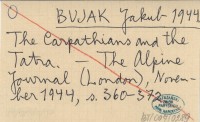 O BUJAK Jakub - 1944
The Carpathians and the
Tatra. — The Alpine
Journal (London), Novem-
ber 1944, s. 360-373